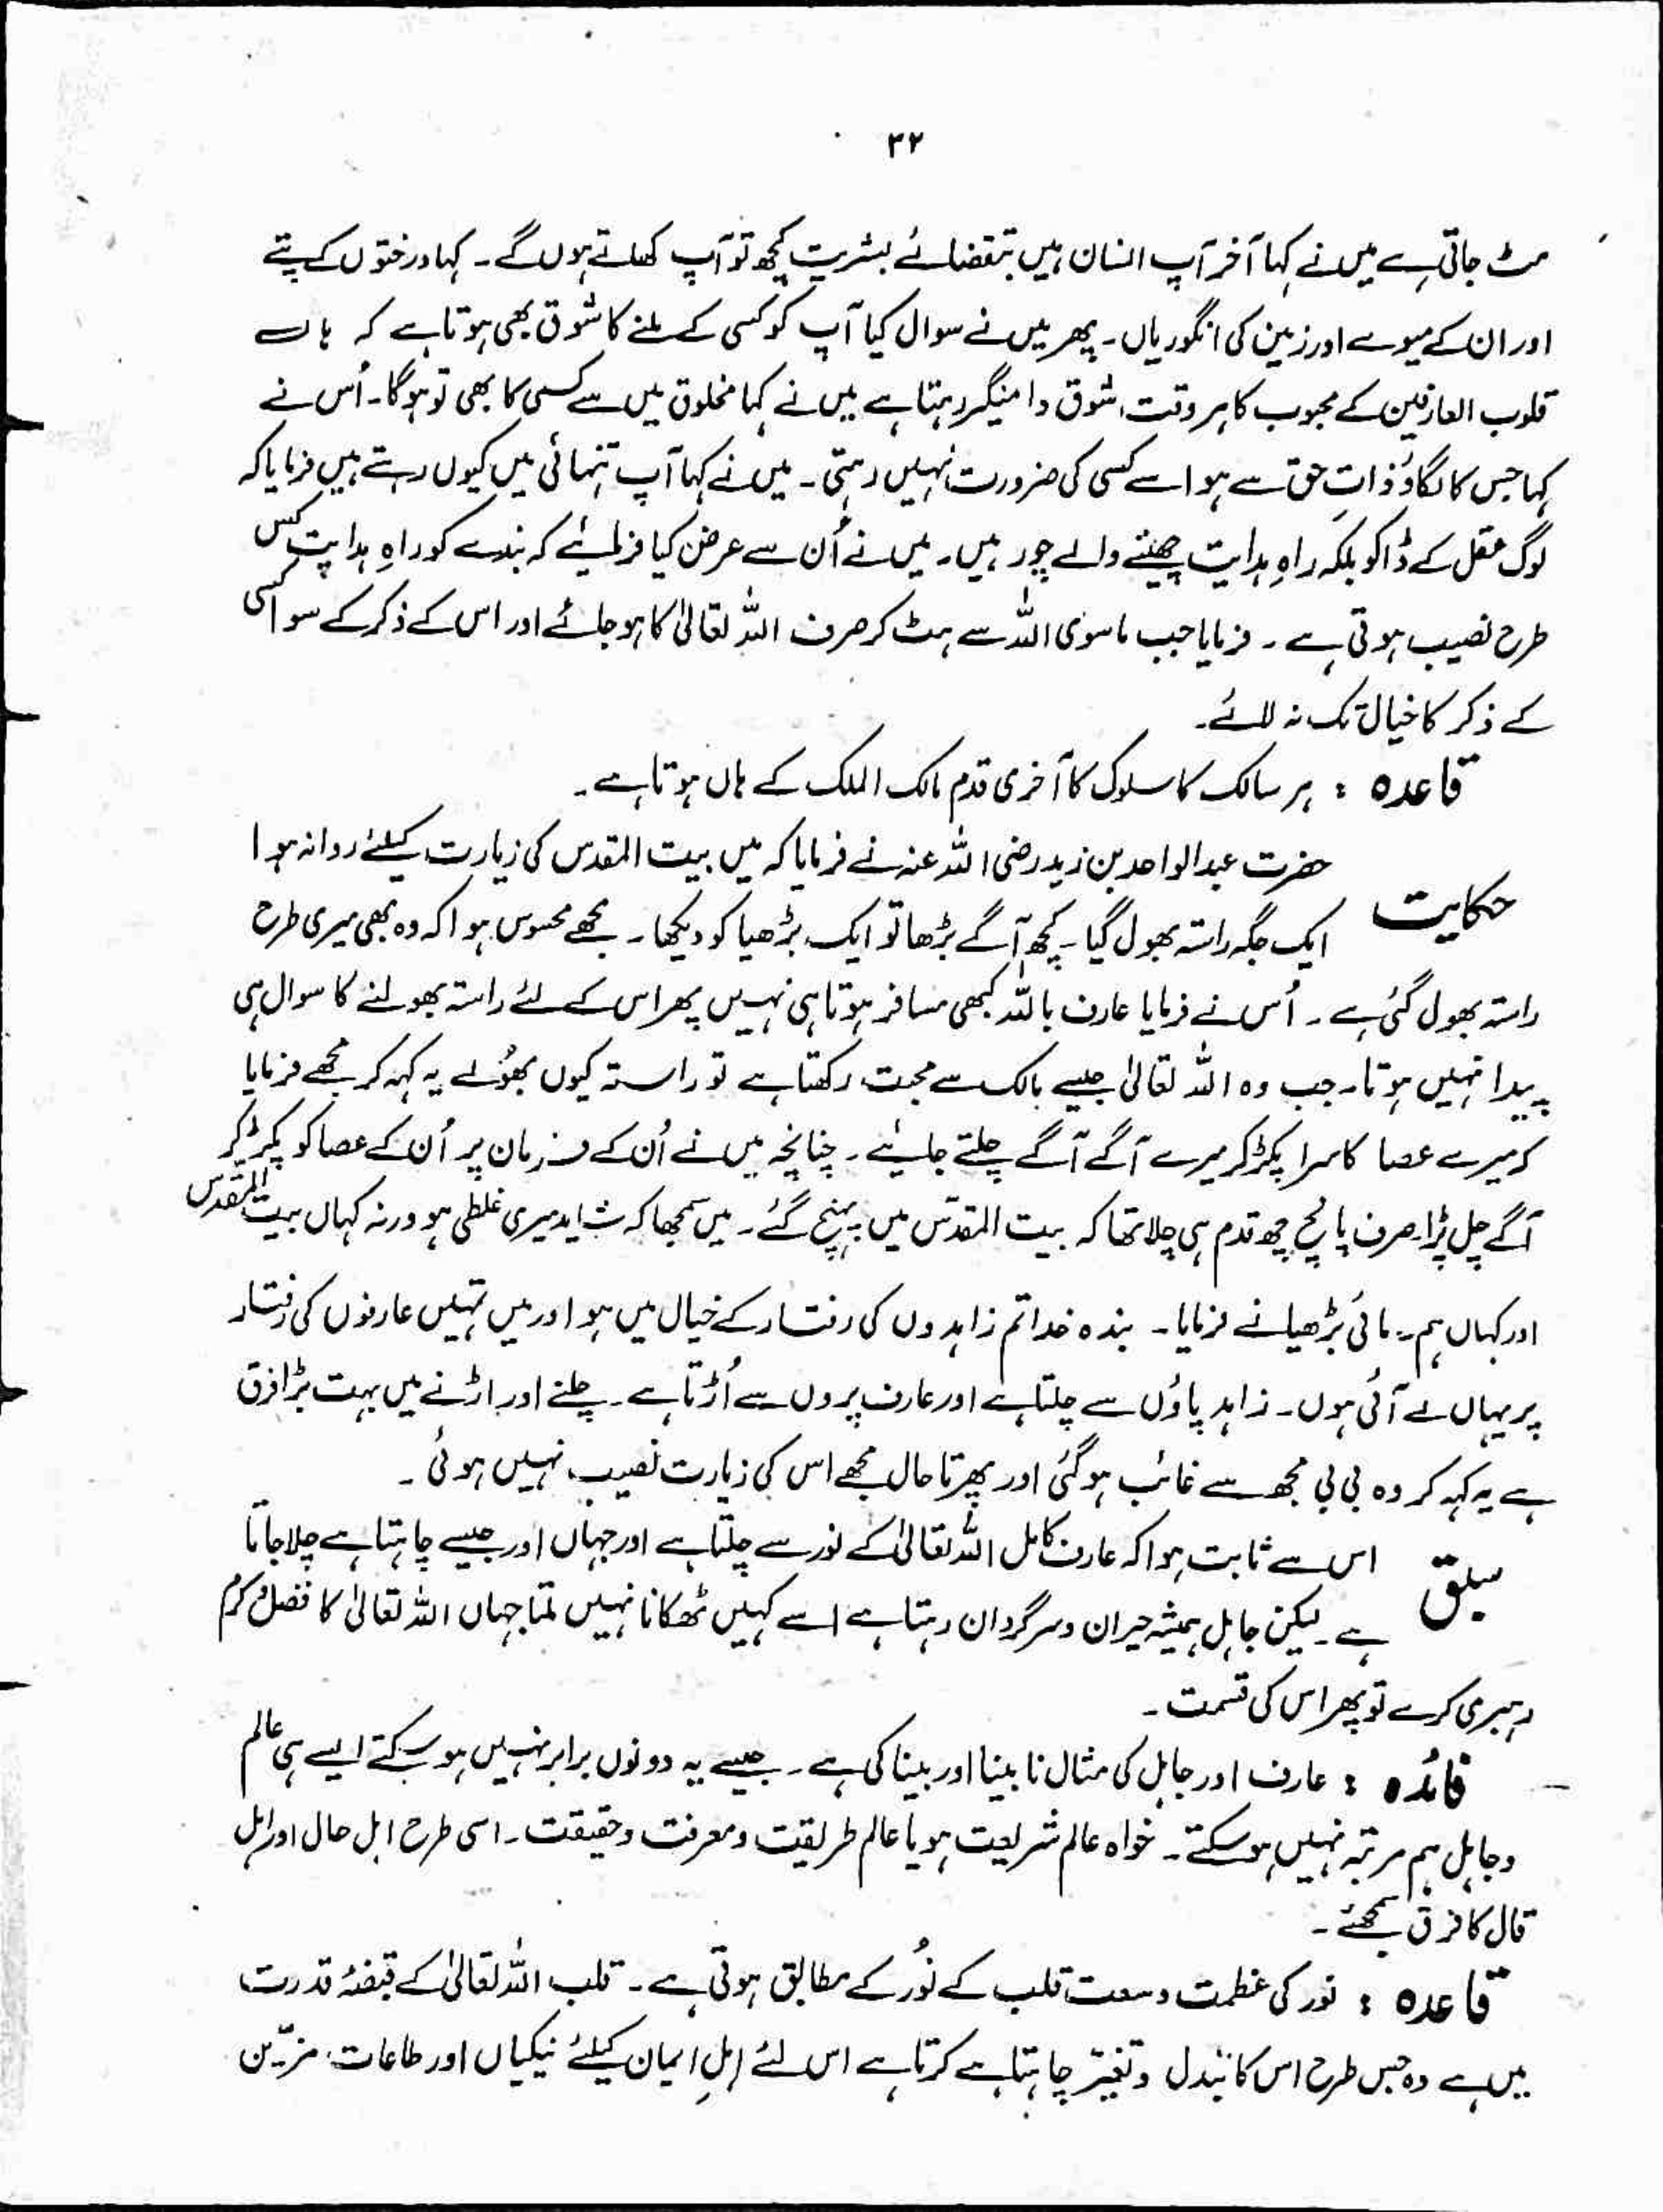 ۳۲
مٹ جاتی ہے میں نے کہا آخر آپ انسان ہیں بتقضائے بشریت کچھ تو آپ کھاتے ہوں گے ۔ کہا درختوں کے پتے
اور ان کے میوے اور زمین کی انگوریاں ۔ پھر میں نے سوال کیا آپ کو کسی کے ملنے کا شوق بھی ہوتا ہے کہ ہاں
قلوب العارفین کے محبوب کا ہر وقت شوق دامنگیر رہتا ہے میں نے کہا مخلوق میں سے کسی کا بھی تو ہوگا ۔ اُس نے
کہا جس کا لگاؤ ذاتِ حق سے ہو اسے کسی کی ضرورت نہیں رہتی ۔ میں نے کہا آپ تنہائی میں کیوں رہتے ہیں فرمایا کہ
لوگ عقل کے ڈاکو بلکہ راہِ ہدایت چھیننے والے چور ہیں ۔ میں نے اُن سے عرض کیا فرمائیے کہ بندے کو راہِ ہدایت کس
طرح نصیب ہوتی ہے ۔ فرمایا جب ماسوی اللہ سے ہٹ کر صرف اللہ تعالیٰ کا ہو جائے اور اس کے ذکر کے سوا کسی
کے ذکر کا خیال تک نہ لائے ۔
قاعدہ : ہر سالک کا سلوک کا آخری قدم مالک الملک کے ہاں ہوتا ہے ۔
حضرت عبدالواحد بن زید رضی اللہ عنہ نے فرمایا کہ میں بیت المقدس کی زیارت کیلئے روانہ ہوا
حکایت
ایک جگہ راستہ بھول گیا ۔ کچھ آگے بڑھا تو ایک بڑھیا کو دیکھا ۔ مجھے محسوس ہوا کہ وہ بھی میری طرح
راستہ بھول گئی ہے ۔ اُس نے فرمایا عارف باللہ کبھی مسافر ہوتا ہی نہیں پھر اس کے لئے راستہ بھولنے کا سوال ہی
پیدا نہیں ہوتا ۔ جب وہ اللہ تعالیٰ جیسے مالک سے محبت رکھتا ہے تو راستہ کیوں بھُولے یہ کہہ کر مجھے فرمایا
کہ میرے عصا کا سرا پکڑ کر میرے آگے آگے چلتے جائیے ۔ چنانچہ میں نے اُن کے فرمان پر اُن کے عصا کو پکڑ کر
آگے چل پڑا صرف پانچ چھ قدم ہی چلا تھا کہ بیت المقدس میں پہنچ گئے ۔ میں سمجھا کہ شاید میری غلطی ہو ورنہ کہاں بیت المقدس
اور کہاں ہم ۔ مائی بڑھیا نے فرمایا ۔ بندہ خدا تم زاہدوں کی رفتار کے خیال میں ہو اور میں تمہیں عارفوں کی رفتار
پر یہاں لے آئی ہوں ۔ زاہد پاؤں سے چلتا ہے اور عارف پروں سے اُڑتا ہے ۔ چلنے اور اڑنے میں بہت بڑا فرق
ہے یہ کہہ کر وہ بی بی مجھ سے غائب ہو گئی اور پھر تا حال مجھے اس کی زیارت نصیب نہیں ہوئی ۔
اس سے ثابت ہوا کہ عارف کامل اللہ تعالیٰ کے نور سے چلتا ہے اور جہاں اور جیسے چاہتا ہے چلا جاتا
سبق
ہے ۔ لیکن جاہل ہمیشہ حیران و سرگردان رہتا ہے اسے کہیں ٹھکانا نہیں ملتا جہاں اللہ تعالیٰ کا فضل و کرم
رہبری کرے تو پھر اس کی قسمت ۔
فائدہ : عارف اور جاہل کی مثال نابینا اور بینا کی ہے ۔ جیسے یہ دونوں برابر نہیں ہو سکتے ایسے ہی عالم
و جاہل ہم مرتبہ نہیں ہو سکتے ۔ خواہ عالم شریعت ہو یا عالم طریقت و معرفت و حقیقت ۔ اسی طرح اہل حال اور اہل
قال کا فرق سمجھئے ۔
قاعدہ : نور کی عظمت وسعت قلب کے نُور کے مطابق ہوتی ہے ۔ قلب اللہ تعالیٰ کے قبضۂ قدرت
میں ہے وہ جس طرح اس کا تبدل و تغیر چاہتا ہے کرتا ہے اس لئے اہلِ ایمان کیلئے نیکیاں اور طاعات مزیّن